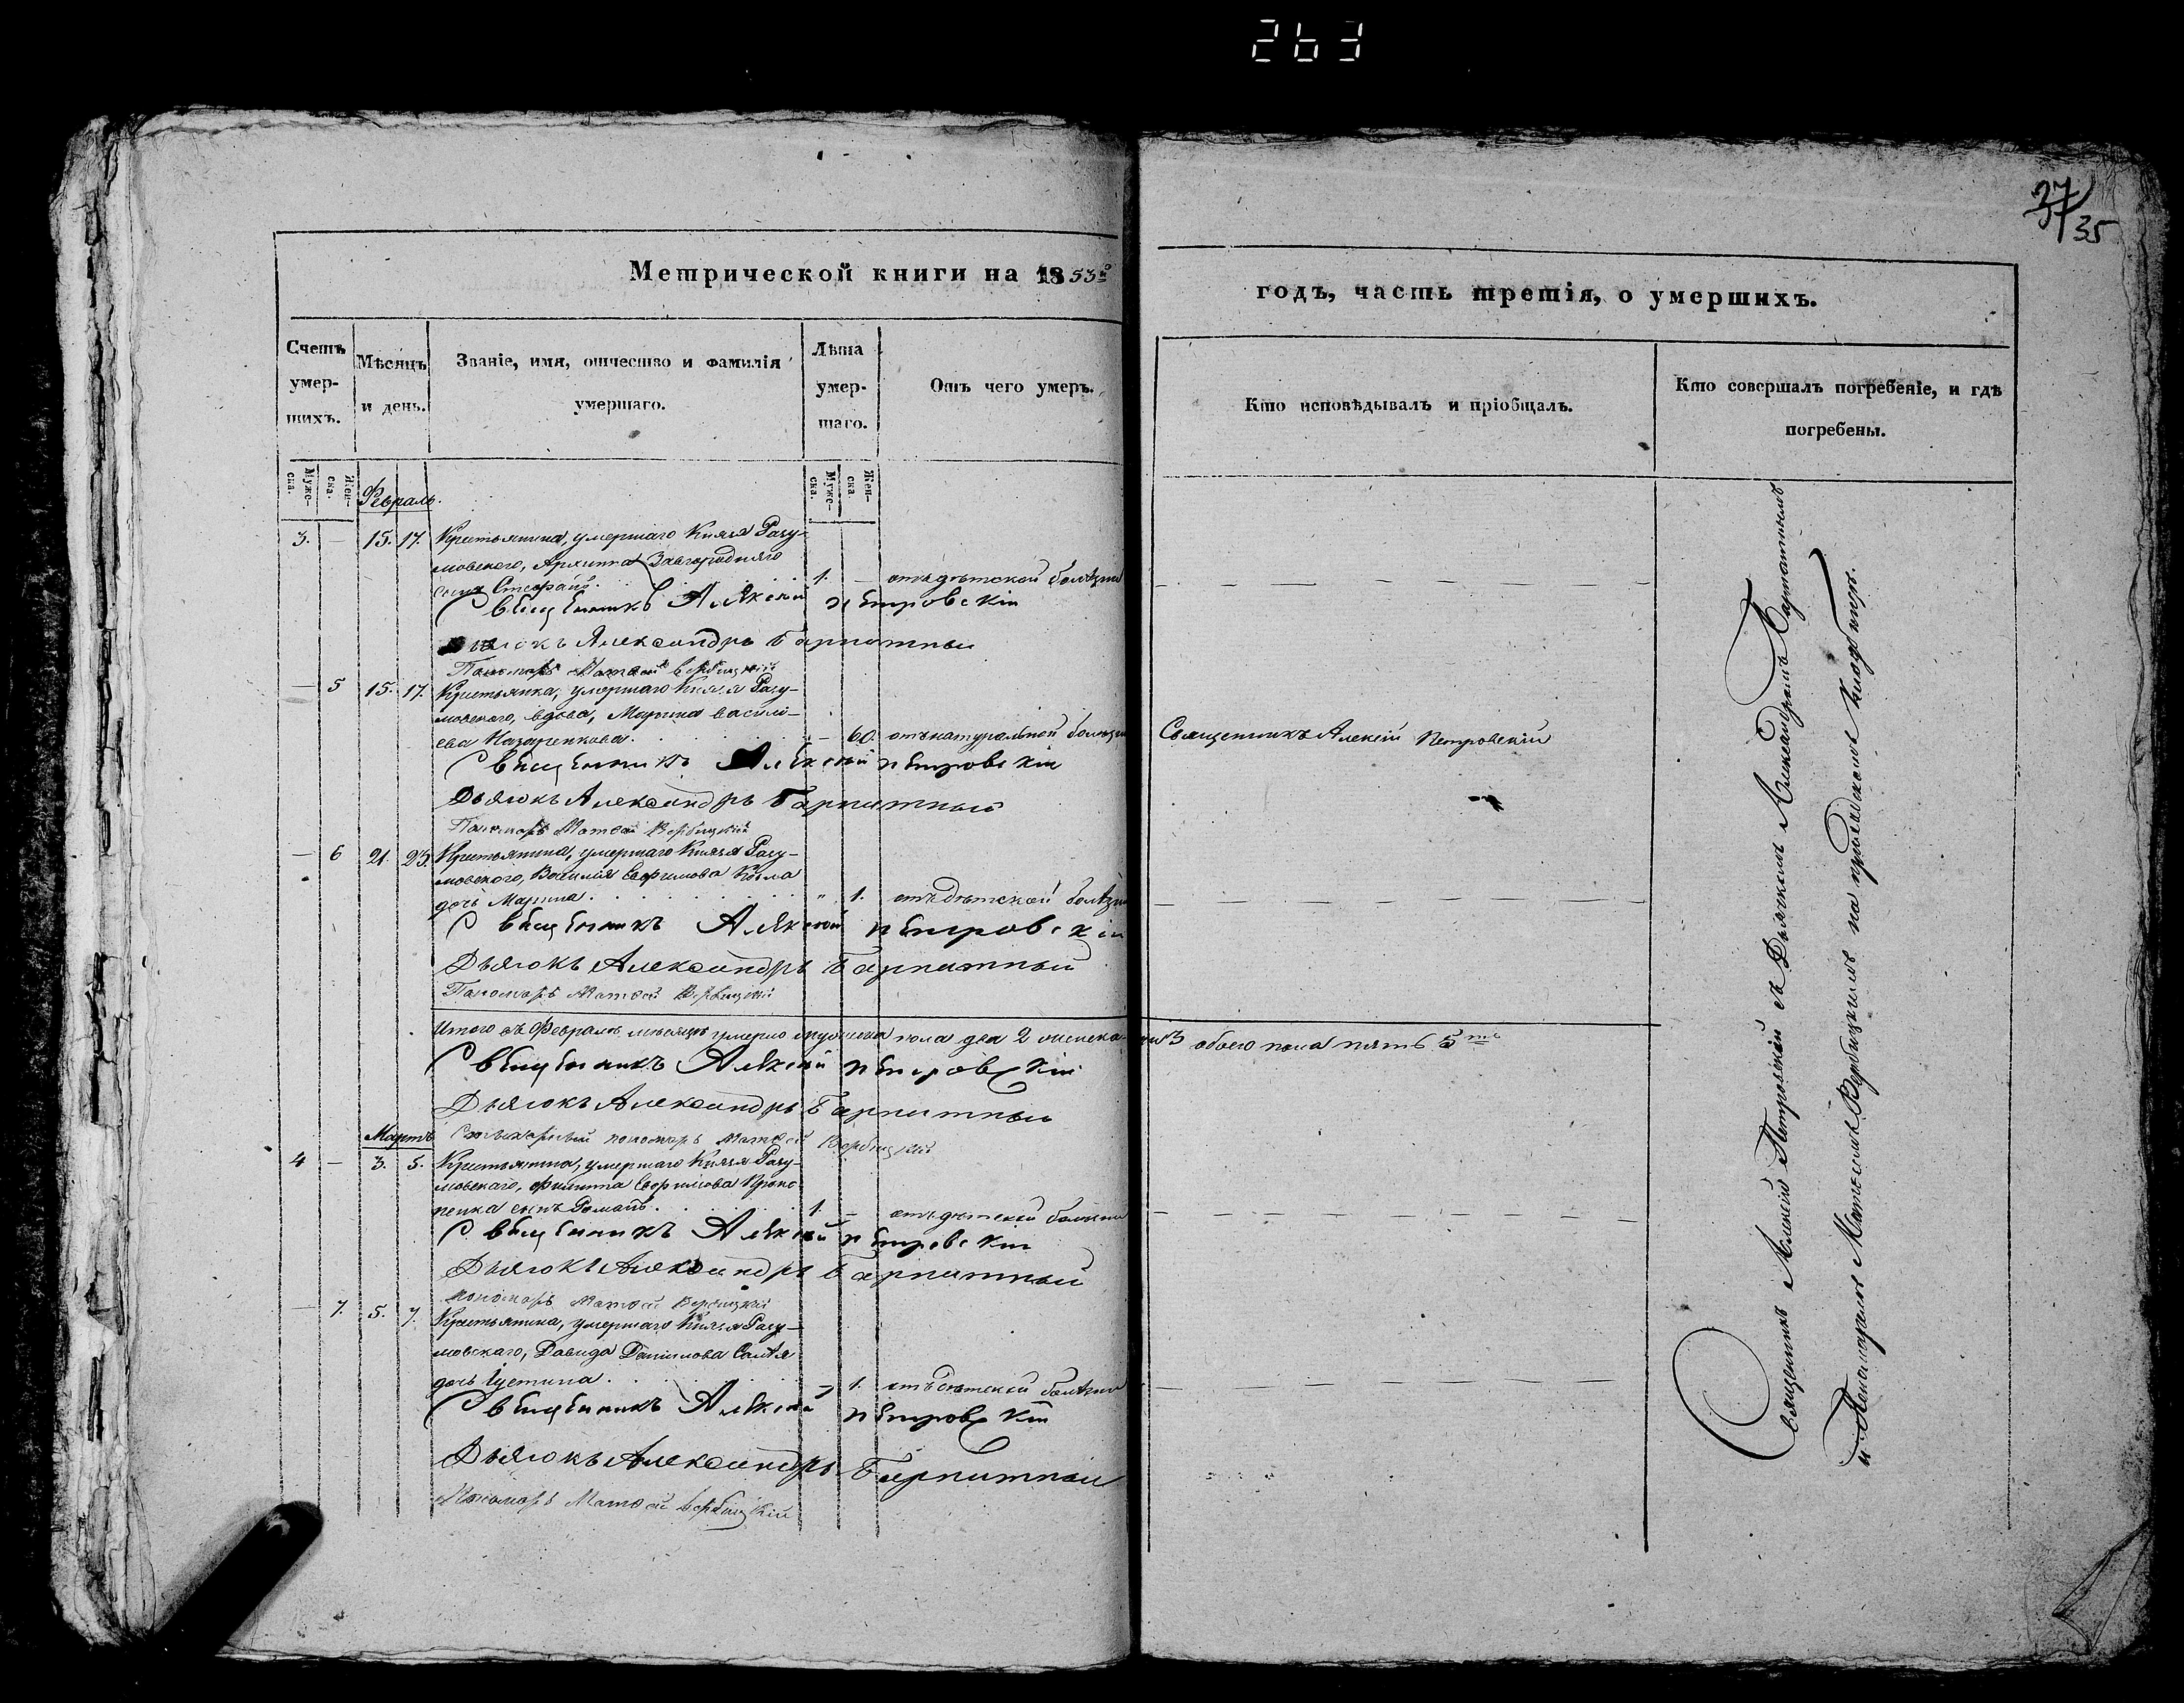 263
37
35
Метрической книги на 1853го
годъ, часть третія, о умершихъ.
Счетъ умер-шихъ.
Мѣсяцъ и день.
Званіе, имя, отчество и фамилія умершаго.
Лѣта умер-шаго.
Отъ чего умеръ.
Кто исповѣдывалъ и пріобщалъ.
Кто совершалъ погребеніе, и гдѣ погребены.
Муже-ска.
Жен-ска.
Муже-ска.
Жен-ска.
Февраль.
3. — 15. 17. Крестьянина, умершаго Князя Разу-
мовскаго, Архипа Завгородняго
сынъ Стефанъ. 1. — отъ дѣтской болѣзни
Священникъ Алексій Петровскій
Дьячокъ Александръ
Пономарь Матѳей Вербицкій
— 5 15. 17. Крестьянка, умершаго Князя Разу-
мовскаго, вдова, Марина Василі-
ева Назаренкова. — 60. отъ натуральной болѣзни Священникъ Алексій Петровскій
Священникъ Алексій Петровскій
Дьячокъ Александръ
Пономарь Матѳей Вербицкій
— 6 21. 23. Крестьянина, умершаго Князя Разу-
мовскаго, Василія Евфимова
дочь Марина. " 1. отъ дѣтской болѣзни
Священникъ Алексій Петровскій
Дьячокъ Александръ
Пономарь Матѳей Вербицкій
Итого въ Февралѣ мѣсяцѣ умерло мужеска пола два 2 женска три 3 обоего пола пять 5ть
Священникъ Алексій Петровскій
Дьячокъ Александръ
Мартъ
Стихарный пономарь Матѳей Вербицкій
4 — 3. 5. Крестьянина, умершаго Князя Разу-
мовскаго, Филиппа Евфимова
сынъ Романъ. 1. — отъ дѣтской болѣзни
Священникъ Алексій Петровскій
Дьячокъ Александръ
Пономарь Матѳей Вербицкій
— 7. 5. 7. Крестьянина, умершаго Князя Разу-
мовскаго, Давида Данилова
дочь Іустина. 1. отъ дѣтской болѣзни
Священникъ Алексій Петровскій
Дьячокъ Александръ
Пономарь Матѳей Вербицкій
Священникъ Алексій Петровскій съ Дьячкомъ Александромъ
и Пономаремъ Матѳеемъ Вербицкимъ на приходскомъ кладбищѣ.